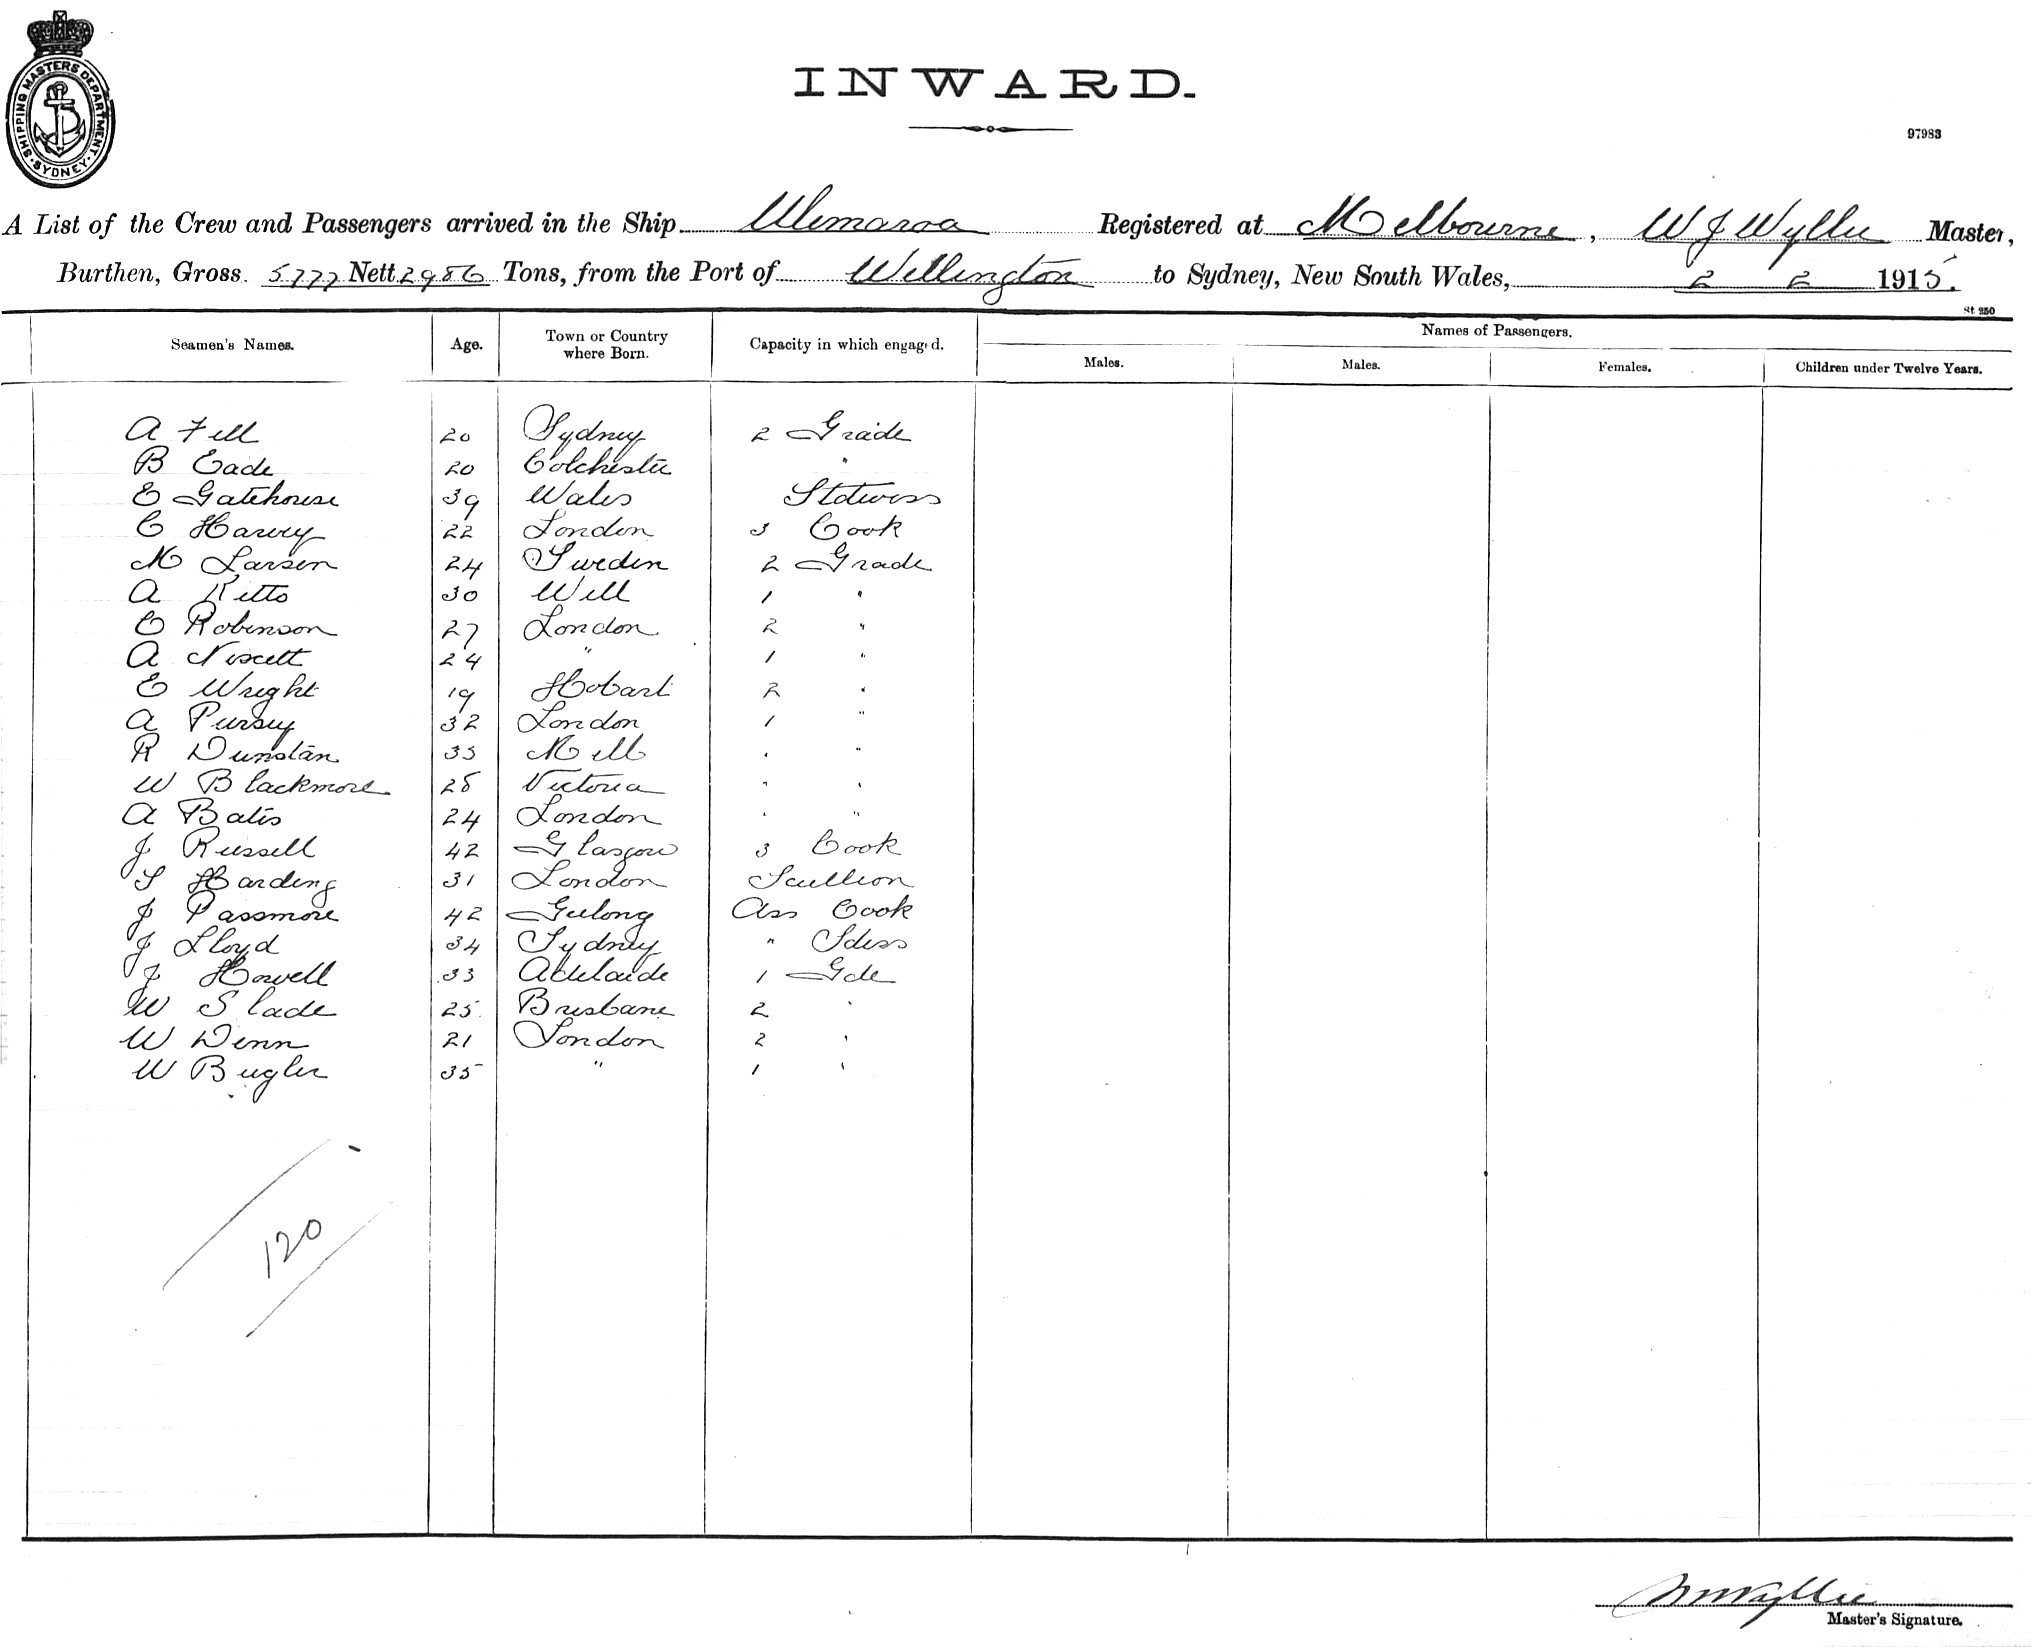 SHIPPING MASTERS DEPARTMENT · SYDNEY ·
INWARD.
97983
A List of the Crew and Passengers arrived in the Ship Ulimaroa Registered at Melbourne, W J Wyllie Master,
Burthen, Gross 5777 Nett 2986 Tons, from the Port of Wellington to Sydney, New South Wales, 2 2 1915.
St 250
Seamen's Names. Age. Town or Country where Born. Capacity in which engaged. Names of Passengers.
Males. Males. Females. Children under Twelve Years.
A Fell 20 Sydney 2 Grade
B Eade 20 Colchester "
E Gatehouse 39 Wales Stdwess
C Harvey 22 London 3 Cook
M Larsen 24 Sweden 2 Grade
A Kitto 30 Well 1 "
E Robinson 27 London 2 "
A 24 " 1 "
E Wright 19 Hobart 2 "
A Pursey 32 London 1 "
R Dunstan 33 Melb " "
W Blackmore 28 Victoria " "
A Bates 24 London " "
J Russell 42 Glasgow 3 Cook
S Harding 31 London Scullion
J Passmore 42 Geelong Ass Cook
J Lloyd 34 Sydney " Sdess
J Howell 33 Adelaide 1 Gde
W Slade 25 Brisbane 2 "
W Denn 21 London 2 "
W Bugler 35 " 1 "
120
WJWyllie
Master's Signature.